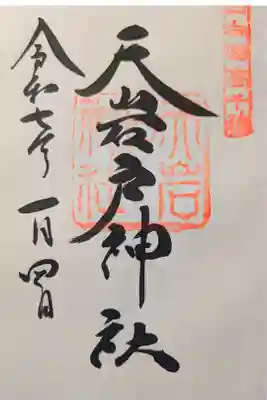 天岩戸神社
令和七年一月四日
天岩戸神社